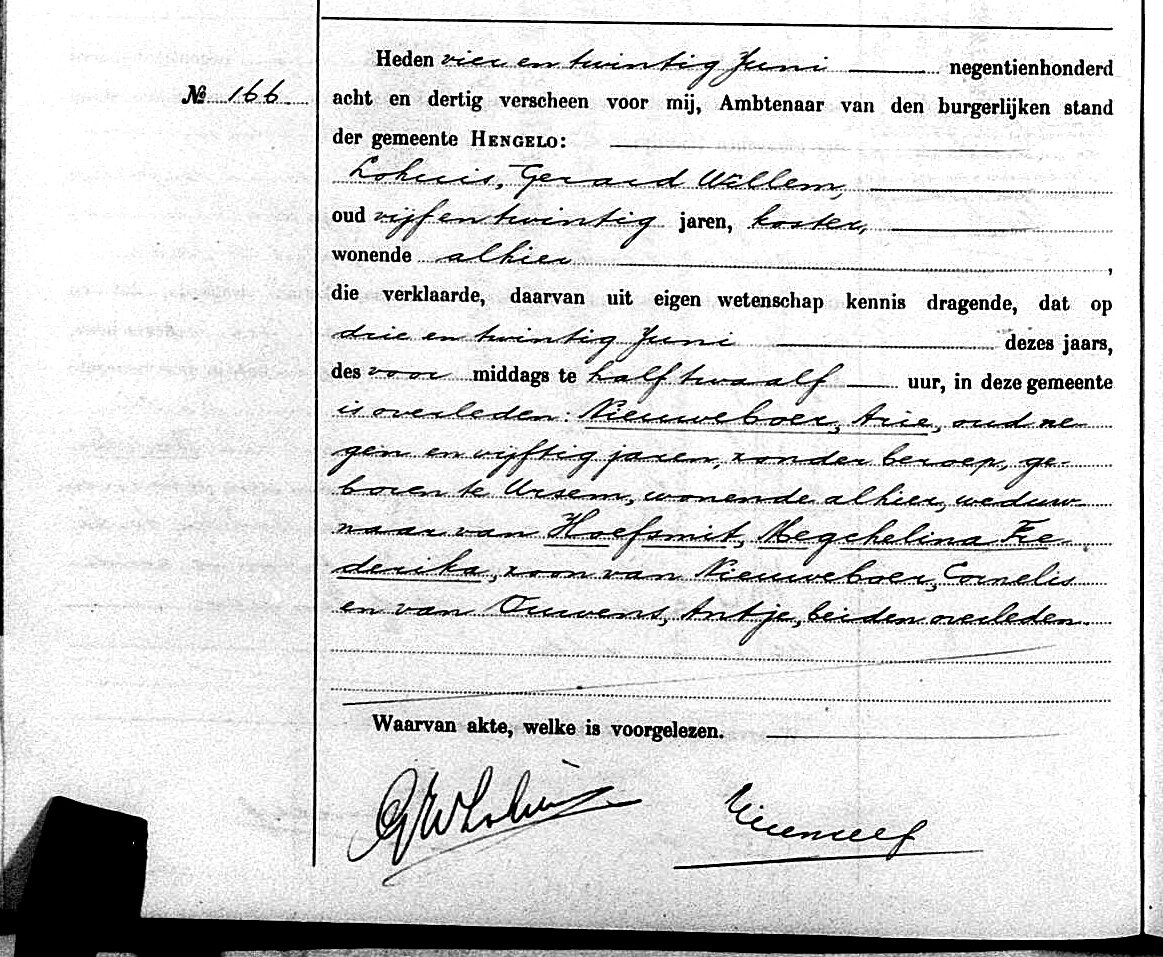 Heden vier en twintig Juni negentienhonderd
№ 166
acht en dertig verscheen voor mij, Ambtenaar van den burgerlijken stand
der gemeente HENGELO:
Lohuis, Gerard Willem,
oud vijf en twintig jaren, koster,
wonende alhier ,
die verklaarde, daarvan uit eigen wetenschap kennis dragende, dat op
drie en twintig Juni dezes jaars,
des voor middags te half twaalf uur, in deze gemeente
is overleden: Nieuweboer, Arie, oud ne-
gen en vijftig jaren, zonder beroep, ge-
boren te Ursem, wonende alhier, weduw-
naar van Hoefsmit, Megchelina Fre
derika, zoon van Nieuweboer, Cornelis
en van Ouwens, Antje, beiden overleden.
Waarvan akte, welke is voorgelezen.
GWLohuis